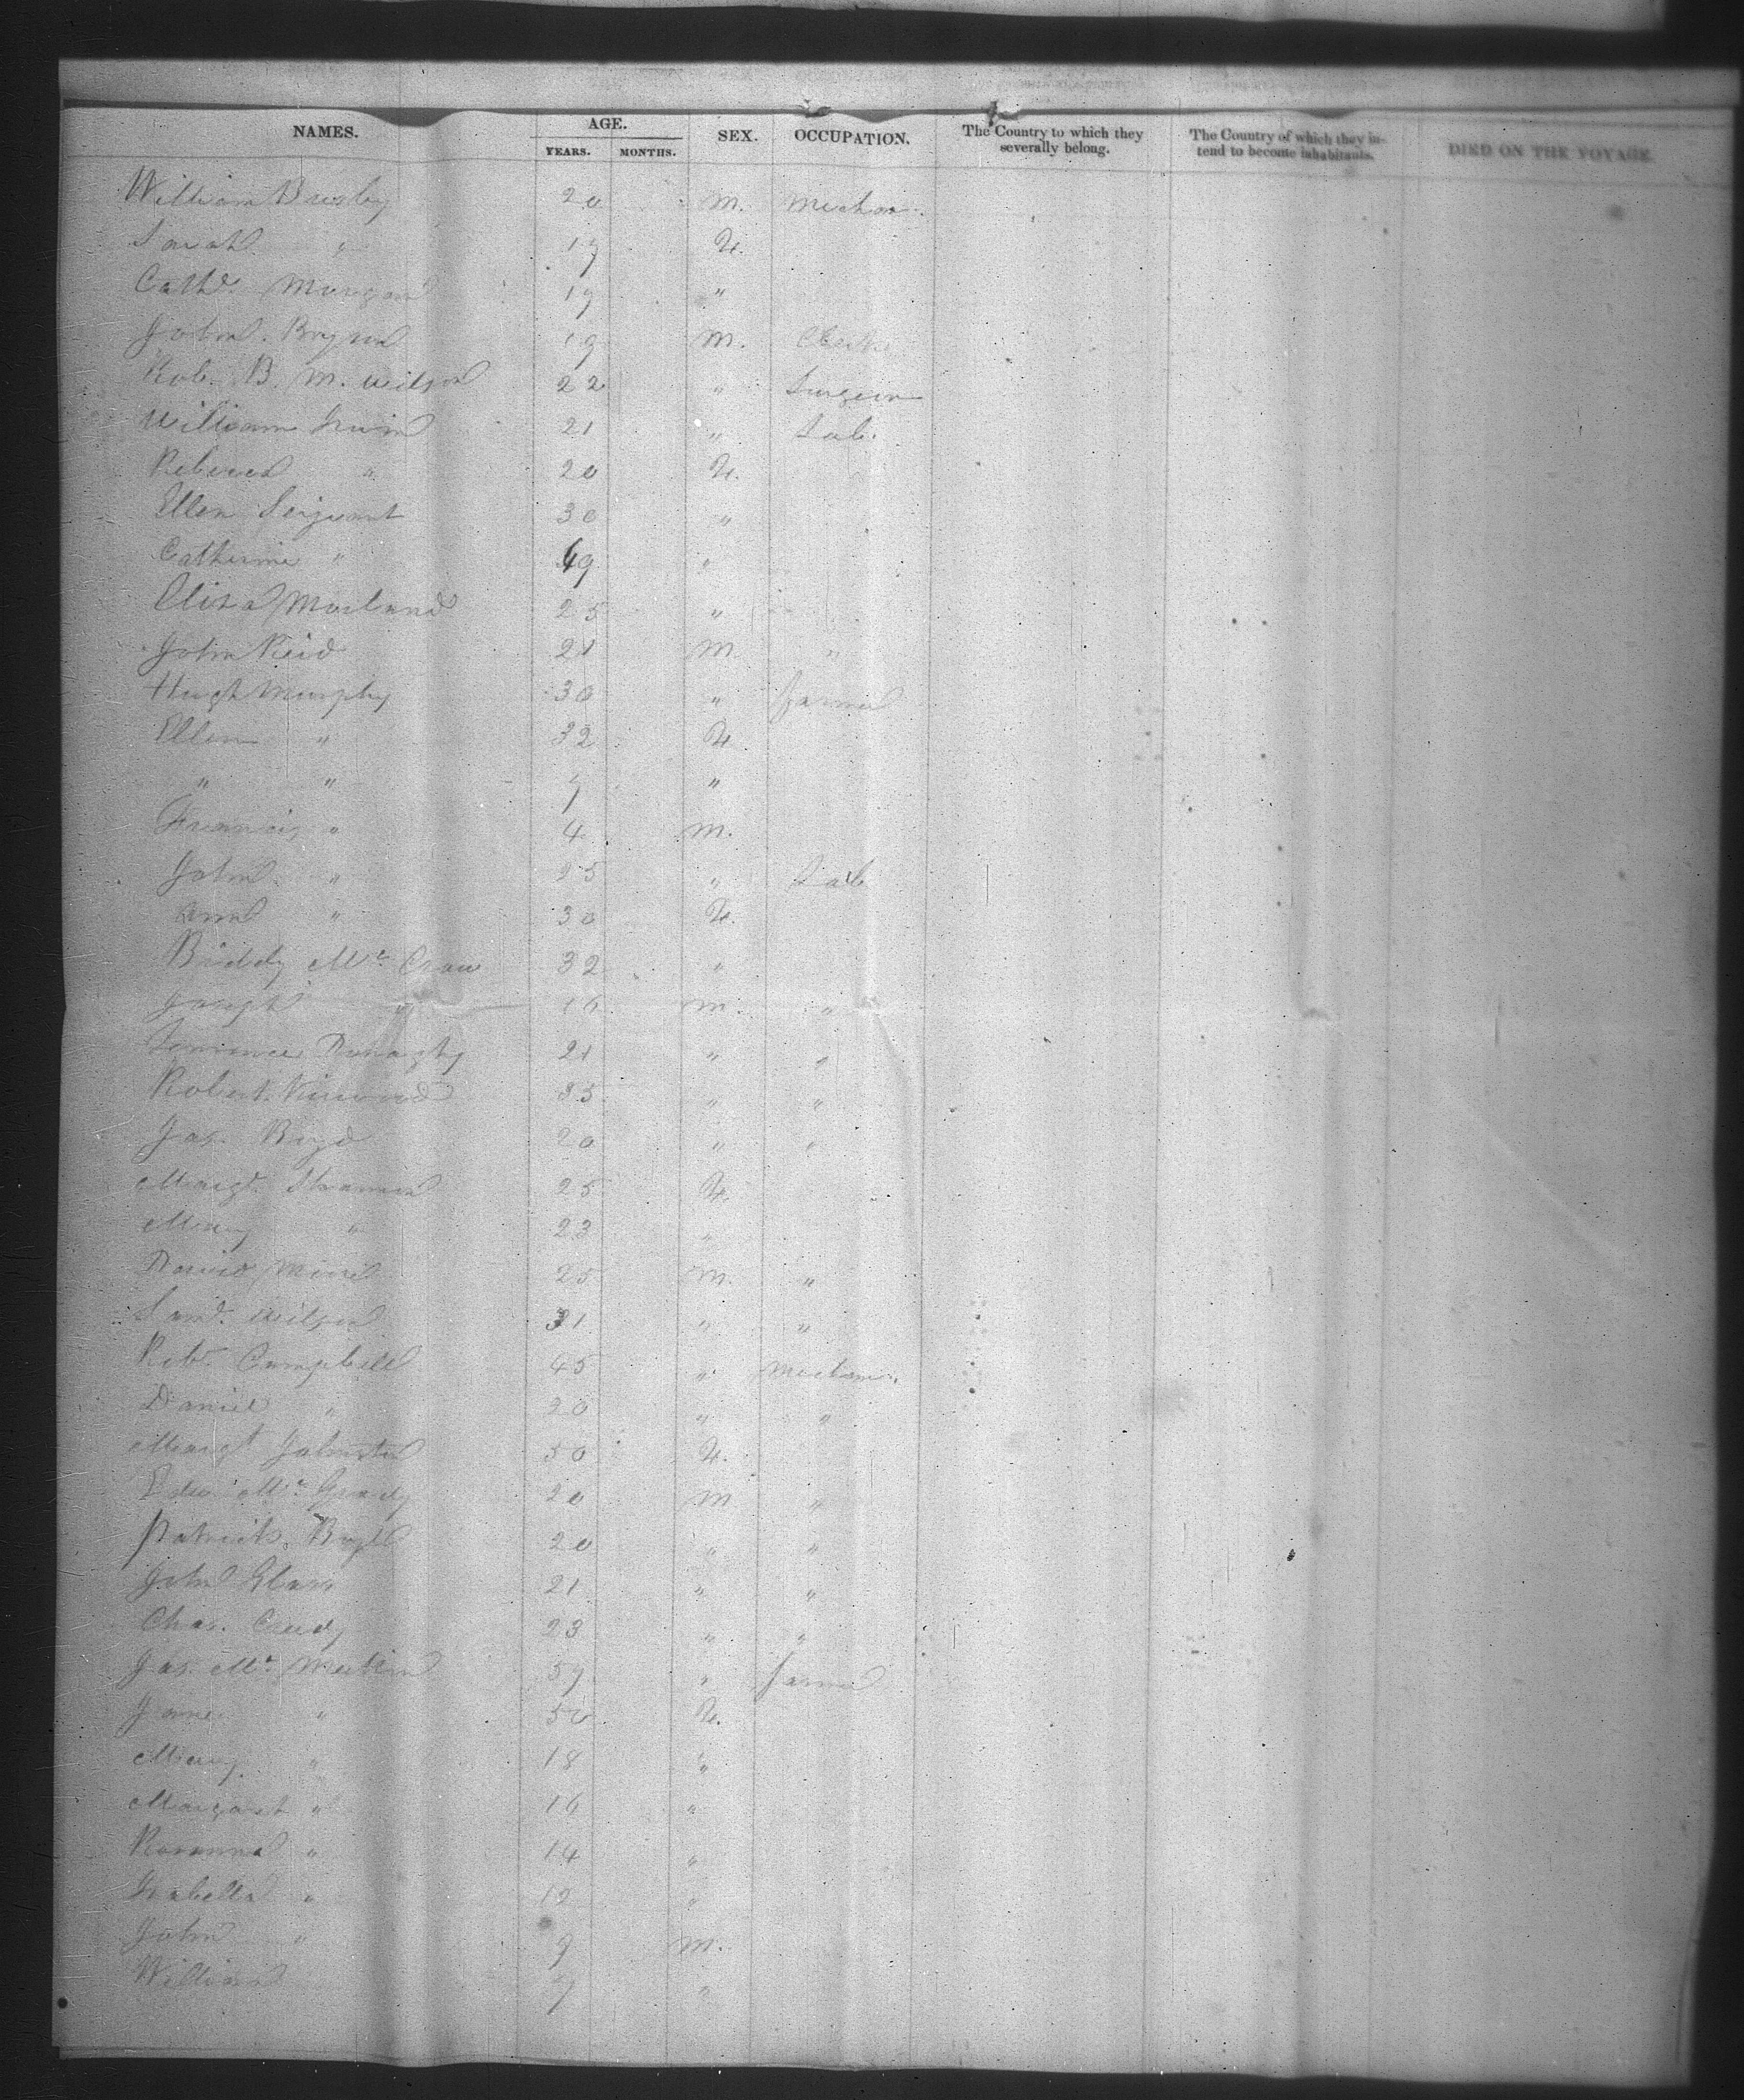 NAMES. AGE. SEX. OCCUPATION. The Country to which they severally belong. The Country of which they intend to become inhabitants. DIED ON THE VOYAGE.
YEARS. MONTHS.
William 20 M. Mechan.
Sarah " 19 F.
Cathe. Morgan 19 "
John Bryan 19 M. Clerk
Rob. B. M. Wilson 22 " Surgeon
William Irwin 21 " Lab.
Rebecca " 20 F.
Ellen Serjeant 30 "
Catherine " 49 "
Eliza Morland 25 "
John Reid 21 M "
Hugh Murphy 30 " Farmer
Ellen " 32 F.
" " 7 "
Francis " 4 M.
John " 25 " Lab
Ann " 30 F.
Biddy Mc. 32 "
Joseph " 16 M. "
21 " "
Robert 35 " "
Jas. Boyd 20 " "
Margt. 25 F.
Mary " 23 "
David 25 M. "
Saml. Wilson 31 " "
Robt. Campbell 45 " Mechan.
Daniel " 20 " "
Margt Johnston 50 F.
Edw. Mc. Grady 20 M "
Patrick Boyle 20 " "
John Glass 21 " "
Chas. 23 " "
Jas. Mc. 59 " Farmer
Jane " 50 F.
Mary " 18 "
Margaret " 16 "
Rosanna " 14 "
Isabella " 12 "
John " 9 M.
William 7 "